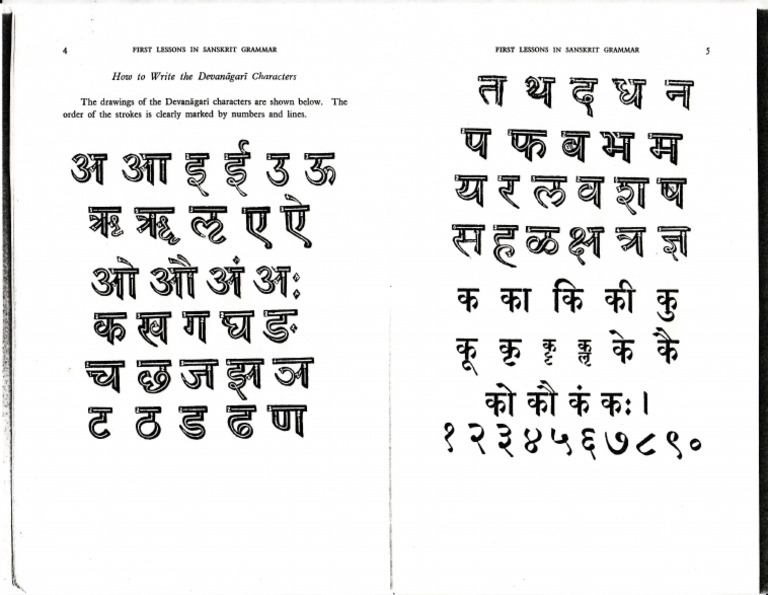 4
FIRST LESSONS IN SANSKRIT GRAMMAR
How to Write the Devanāgarī Characters
The drawings of the Devanāgarī characters are shown below. The
order of the strokes is clearly marked by numbers and lines.
अ आ इ ई उ ऊ
ऋ ॠ ऌ ए ऐ
ओ औ अं अः
क ख ग घ ङ
च छ ज झ ञ
ट ठ ड ढ ण
FIRST LESSONS IN SANSKRIT GRAMMAR
5
त थ द ध न
प फ ब भ म
य र ल व श ष
स ह ळ क्ष त्र ज्ञ
क का कि की कु
कू कृ कॄ कॢ के कै
को कौ कं कः ।
१ २ ३ ४ ५ ६ ७ ८ ९ ०